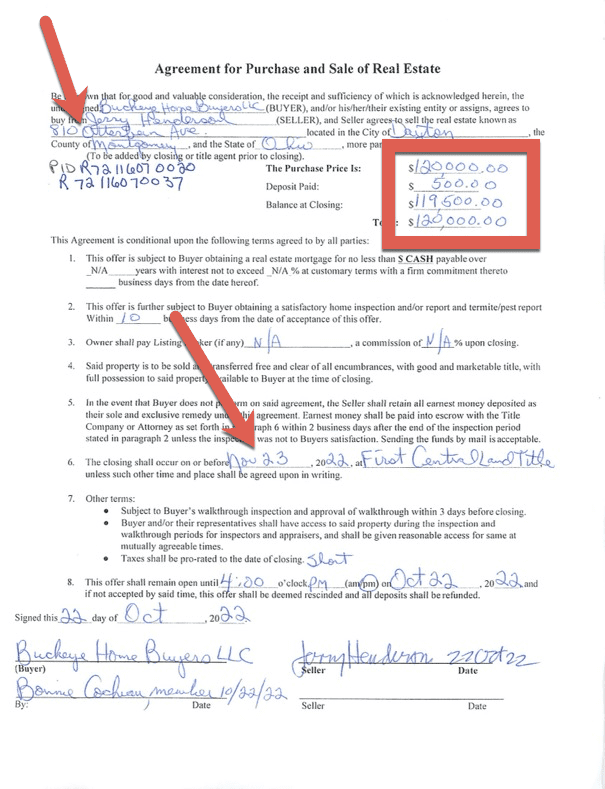 Agreement for Purchase and Sale of Real Estate
Be own that for good and valuable consideration, the receipt and sufficiency of which is acknowledged herein, the
un ned Buckeye Home Buyers LLC (BUYER), and/or his/her/their existing entity or assigns, agrees to
buy from Jerry Henderson (SELLER), and Seller agrees to sell the real estate known as
810 Otterbein Ave. located in the City of Dayton, the
County of Montgomery, and the State of Ohio, more par
(To be added by closing or title agent prior to closing).
PID R72116070020
R72116070037
The Purchase Price Is: $120000.00
Deposit Paid: $ 500.00
Balance at Closing: $119,500.00
To : $120,000.00
This Agreement is conditional upon the following terms agreed to by all parties:
1. This offer is subject to Buyer obtaining a real estate mortgage for no less than $ CASH payable over
_N/A____years with interest not to exceed _N/A % at customary terms with a firm commitment thereto
______ business days from the date hereof.
2. This offer is further subject to Buyer obtaining a satisfactory home inspection and/or report and termite/pest report
Within 10 b ess days from the date of acceptance of this offer.
3. Owner shall pay Listing ker (if any) N/A, a commission of N/A % upon closing.
4. Said property is to be sold a ransferred free and clear of all encumbrances, with good and marketable title, with
full possession to said property vailable to Buyer at the time of closing.
5. In the event that Buyer does not p rm on said agreement, the Seller shall retain all earnest money deposited as
their sole and exclusive remedy und his agreement. Earnest money shall be paid into escrow with the Title
Company or Attorney as set forth in graph 6 within 2 business days after the end of the inspection period
stated in paragraph 2 unless the inspec was not to Buyers satisfaction. Sending the funds by mail is acceptable.
6. The closing shall occur on or before Nov 23, 2022, at First Central Land Title
unless such other time and place shall be agreed upon in writing.
7. Other terms:
• Subject to Buyer's walkthrough inspection and approval of walkthrough within 3 days before closing.
• Buyer and/or their representatives shall have access to said property during the inspection and
walkthrough periods for inspectors and appraisers, and shall be given reasonable access for same at
mutually agreeable times.
• Taxes shall be pro-rated to the date of closing. Short
8. This offer shall remain open until 4:00 o'clock PM (am/pm) on Oct 22, 2022 and
if not accepted by said time, this offer shall be deemed rescinded and all deposits shall be refunded.
Signed this 22 day of Oct, 2022
Buckeye Home Buyers LLC
Jerry Henderson 22 Oct 22
(Buyer)
Seller Date
Bonnie Cochran member 10/22/22
By: ) Date
Seller Date